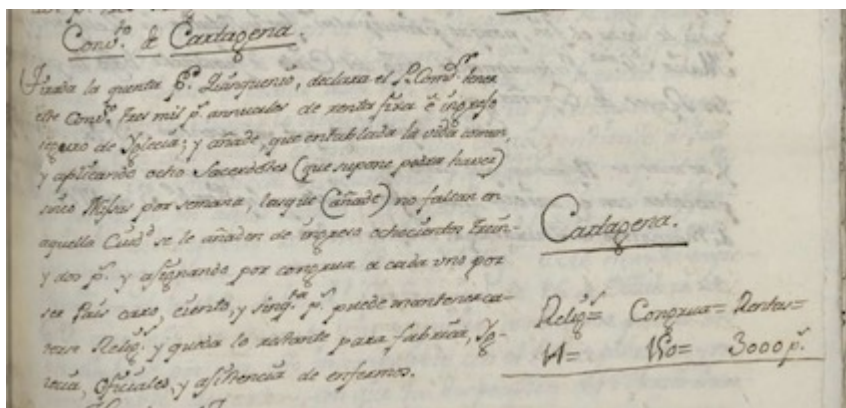 Conv.to de Cartagena.
Tirada la quenta p.r Quinquenio, declara el P. Comd.r tener
este Conv.to tres mil p.s annuales de renta fixa è ingreso
seguro de Yglecia; y añade, que entablada la vida comun,
y aplicando ocho Sacerdotes (que supone podra haver)
cinco Missas por semana, las que (añade) no faltan en
aquella Ciud.d se le añaden de ingreso ochocientos trein-
y dos p.s y asignando por congrua a cada uno por
ser Pais caro, ciento, y sinq.ta p.s puede mantener ca-
torse Relig.s y queda lo restante para fabrica, Yg-
lecia, Oficiales, y asistencia de enfermos.
Cartagena.
Relig.s= Congrua= Rentas=
14= 150= 3000 p.s